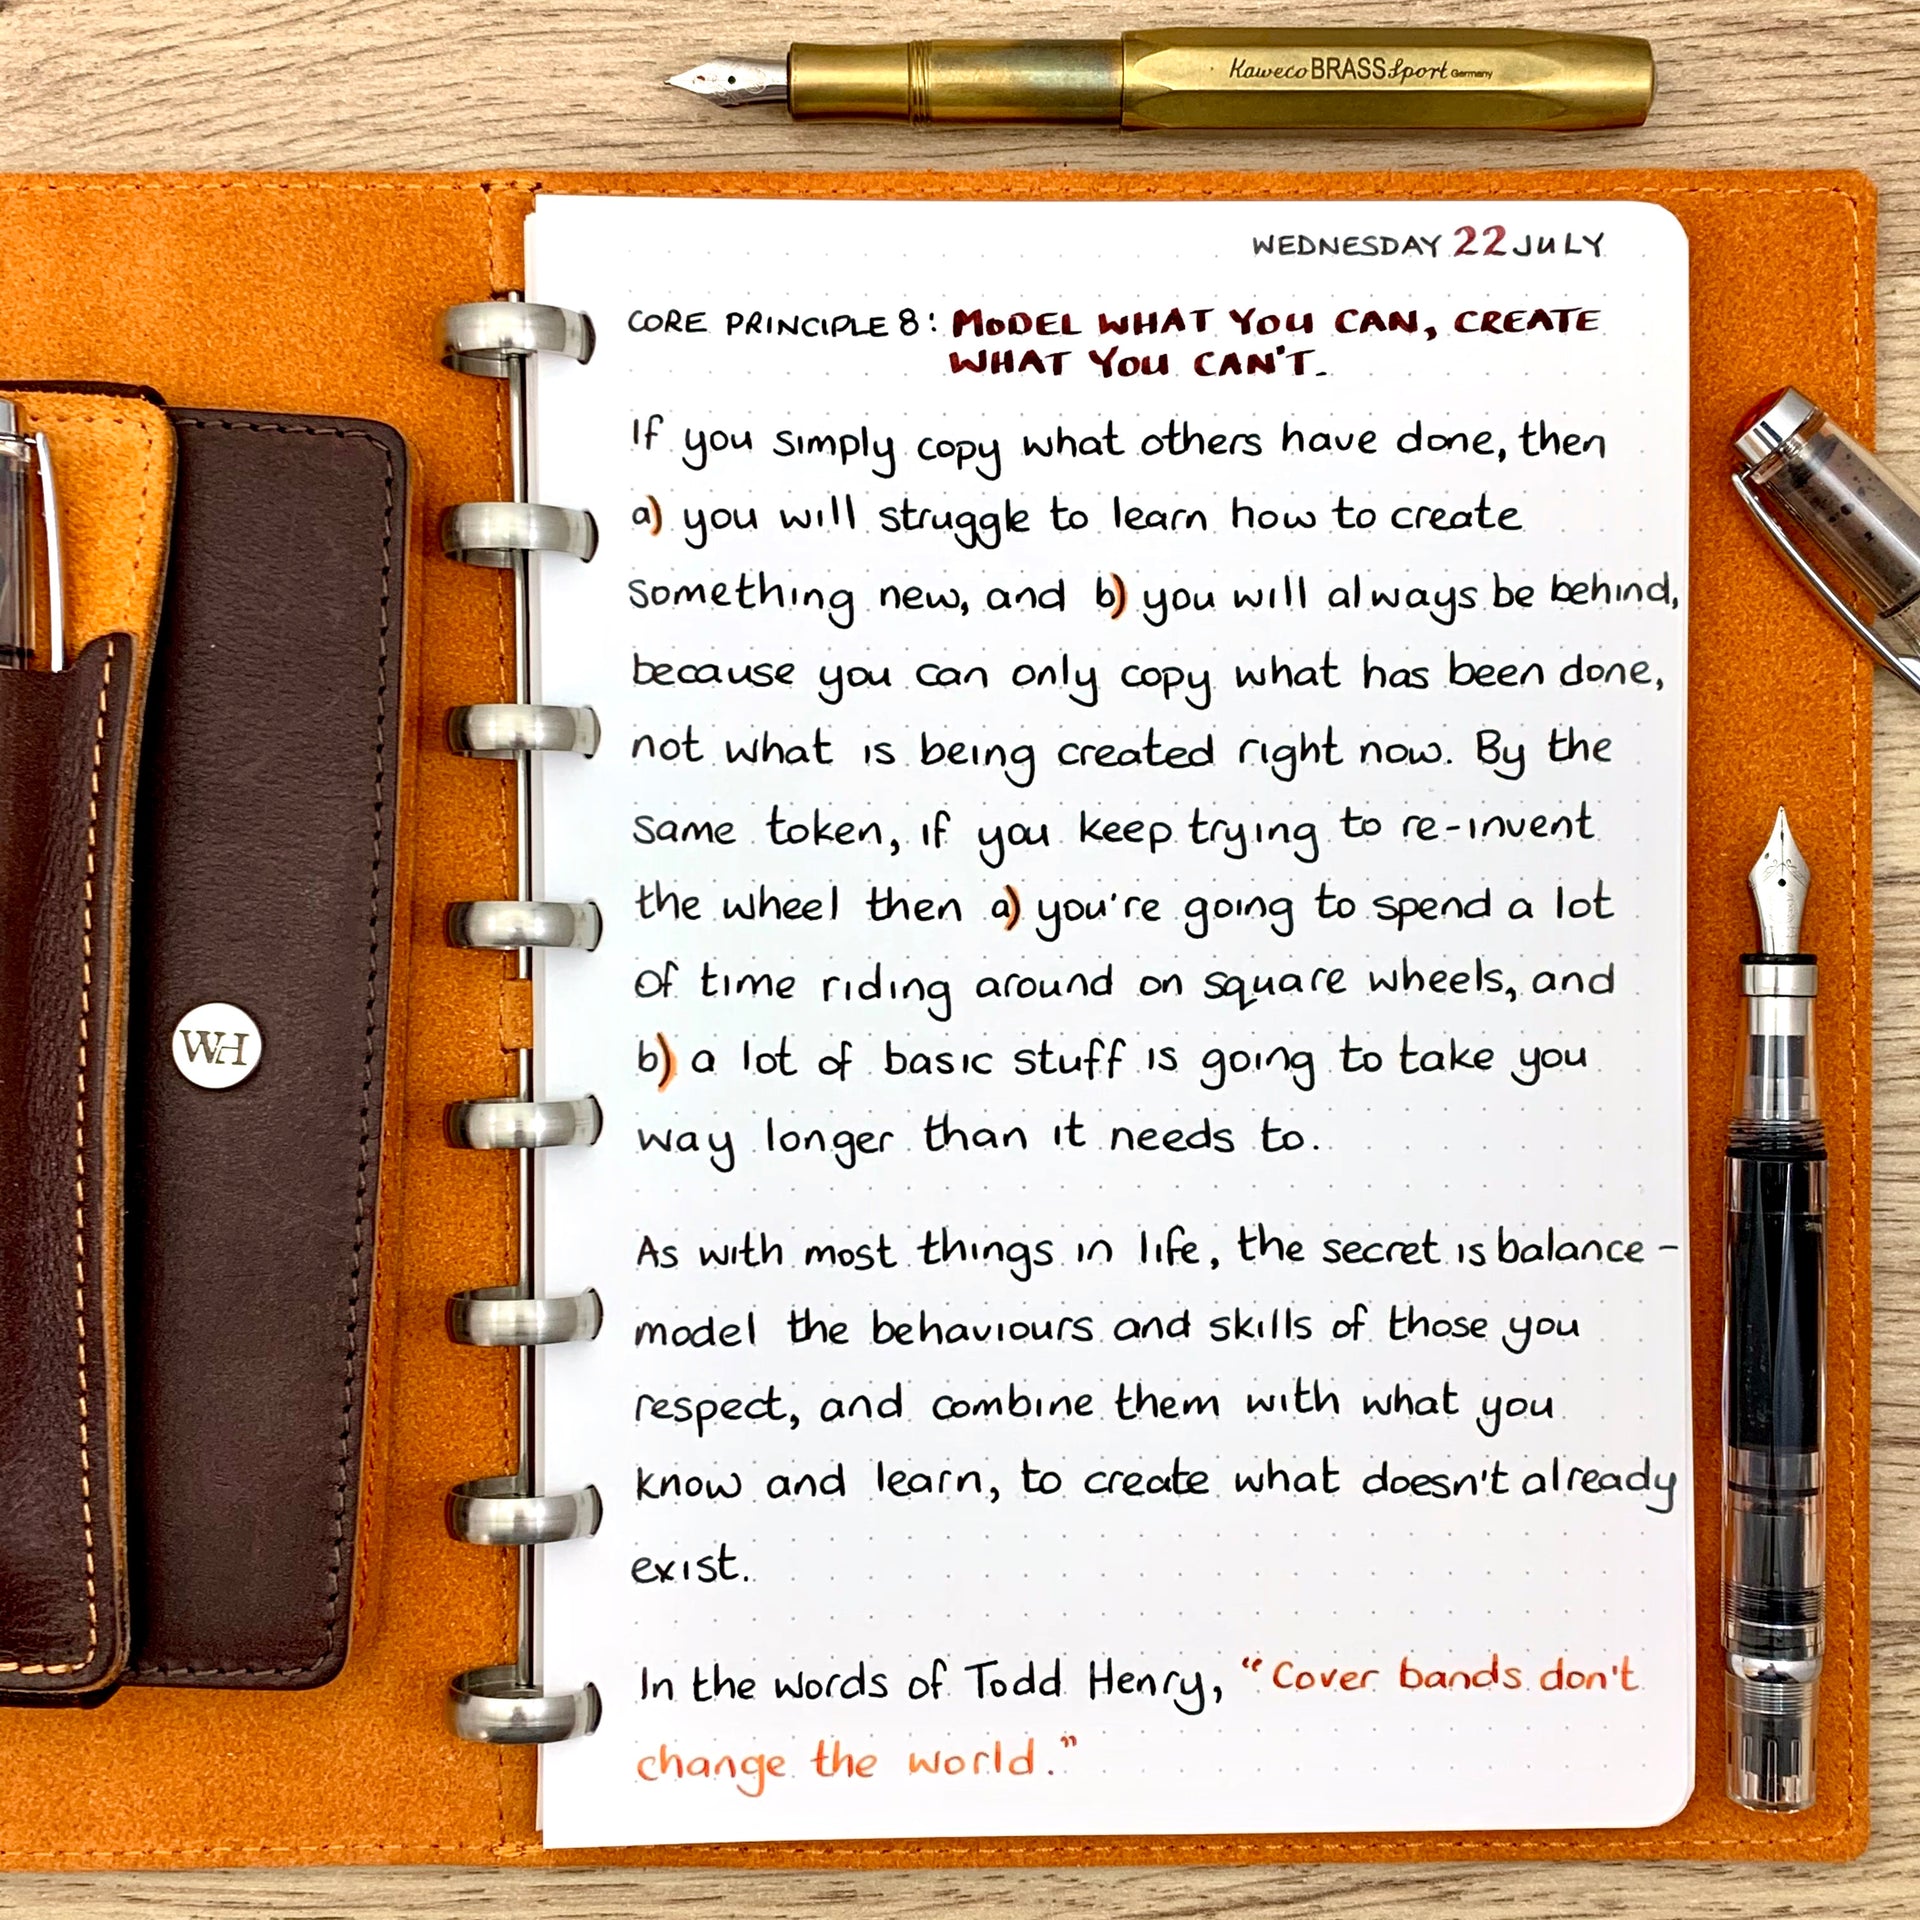 Kaweco BRASS Sport Germany
WEDNESDAY 22 JULY
CORE PRINCIPLE 8: MODEL WHAT YOU CAN, CREATE
WHAT YOU CAN'T.
If you simply copy what others have done, then
a) you will struggle to learn how to create
something new, and b) you will always be behind,
because you can only copy what has been done,
not what is being created right now. By the
same token, if you keep trying to re-invent
the wheel then a) you're going to spend a lot
of time riding around on square wheels, and
b) a lot of basic stuff is going to take you
way longer than it needs to.
As with most things in life, the secret is balance –
model the behaviours and skills of those you
respect, and combine them with what you
know and learn, to create what doesn't already
exist.
In the words of Todd Henry, “Cover bands don't
change the world.”
WH